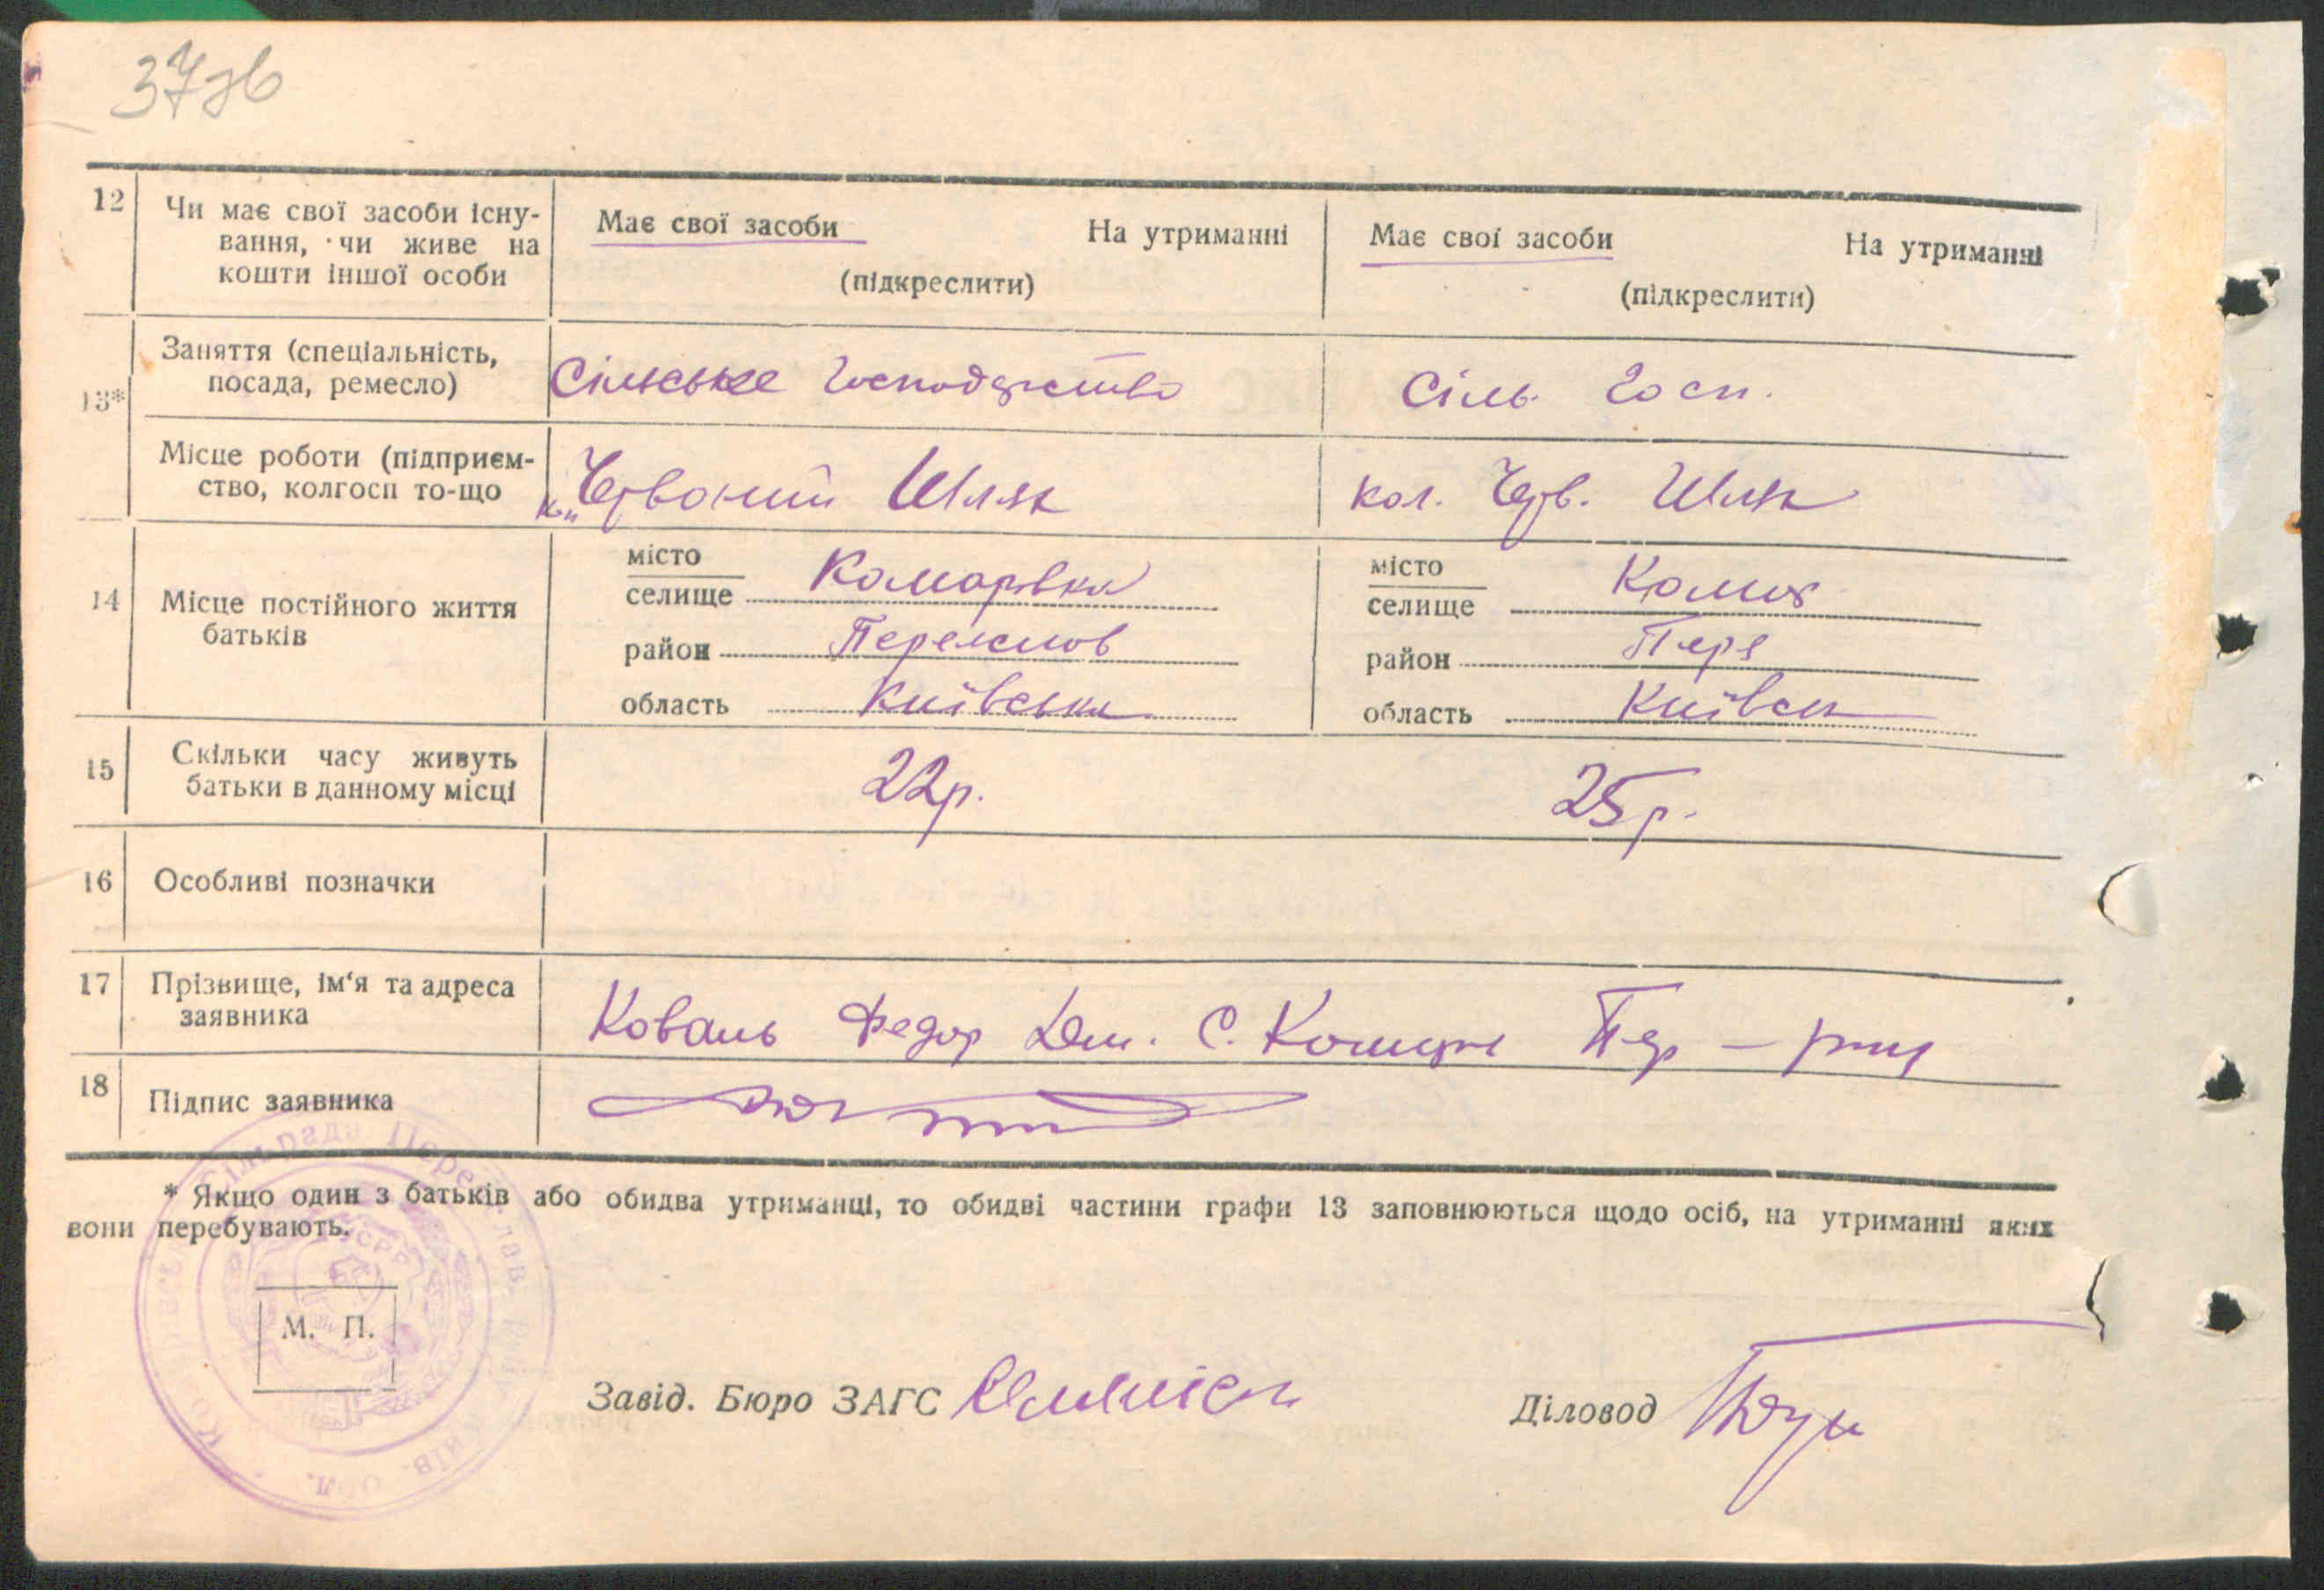 37зв
12 Чи має свої засоби існу-
вання, чи живе на
кошти іншої особи
Має свої засоби На утриманні
(підкреслити)
Має свої засоби На утриманні
(підкреслити)
13*
Заняття (спеціальність,
посада, ремесло)
Сільське Господарство
Сіль. Госп.
Місце роботи (підприєм-
ство, колгосп то-що
к. „Червоний Шлях
кол. Черв. Шлях
14 Місце постійного життя
батьків
місто
селище Комарівка
район
область Київська
місто
селище
район Пере
область Київсь
15 Скільки часу живуть
батьки в данному місці
22р.
25р.
16 Особливі позначки
17 Прізвище, ім‘я та адреса
заявника
Коваль Федор Дем. С. Пер –
18 Підпис заявника
* Якщо один з батьків або обидва утриманці, то обидві частини графи 13 заповнюються щодо осіб, на утриманні яких
вони перебувають.
М. П.
Завід. Бюро ЗАГС
Діловод